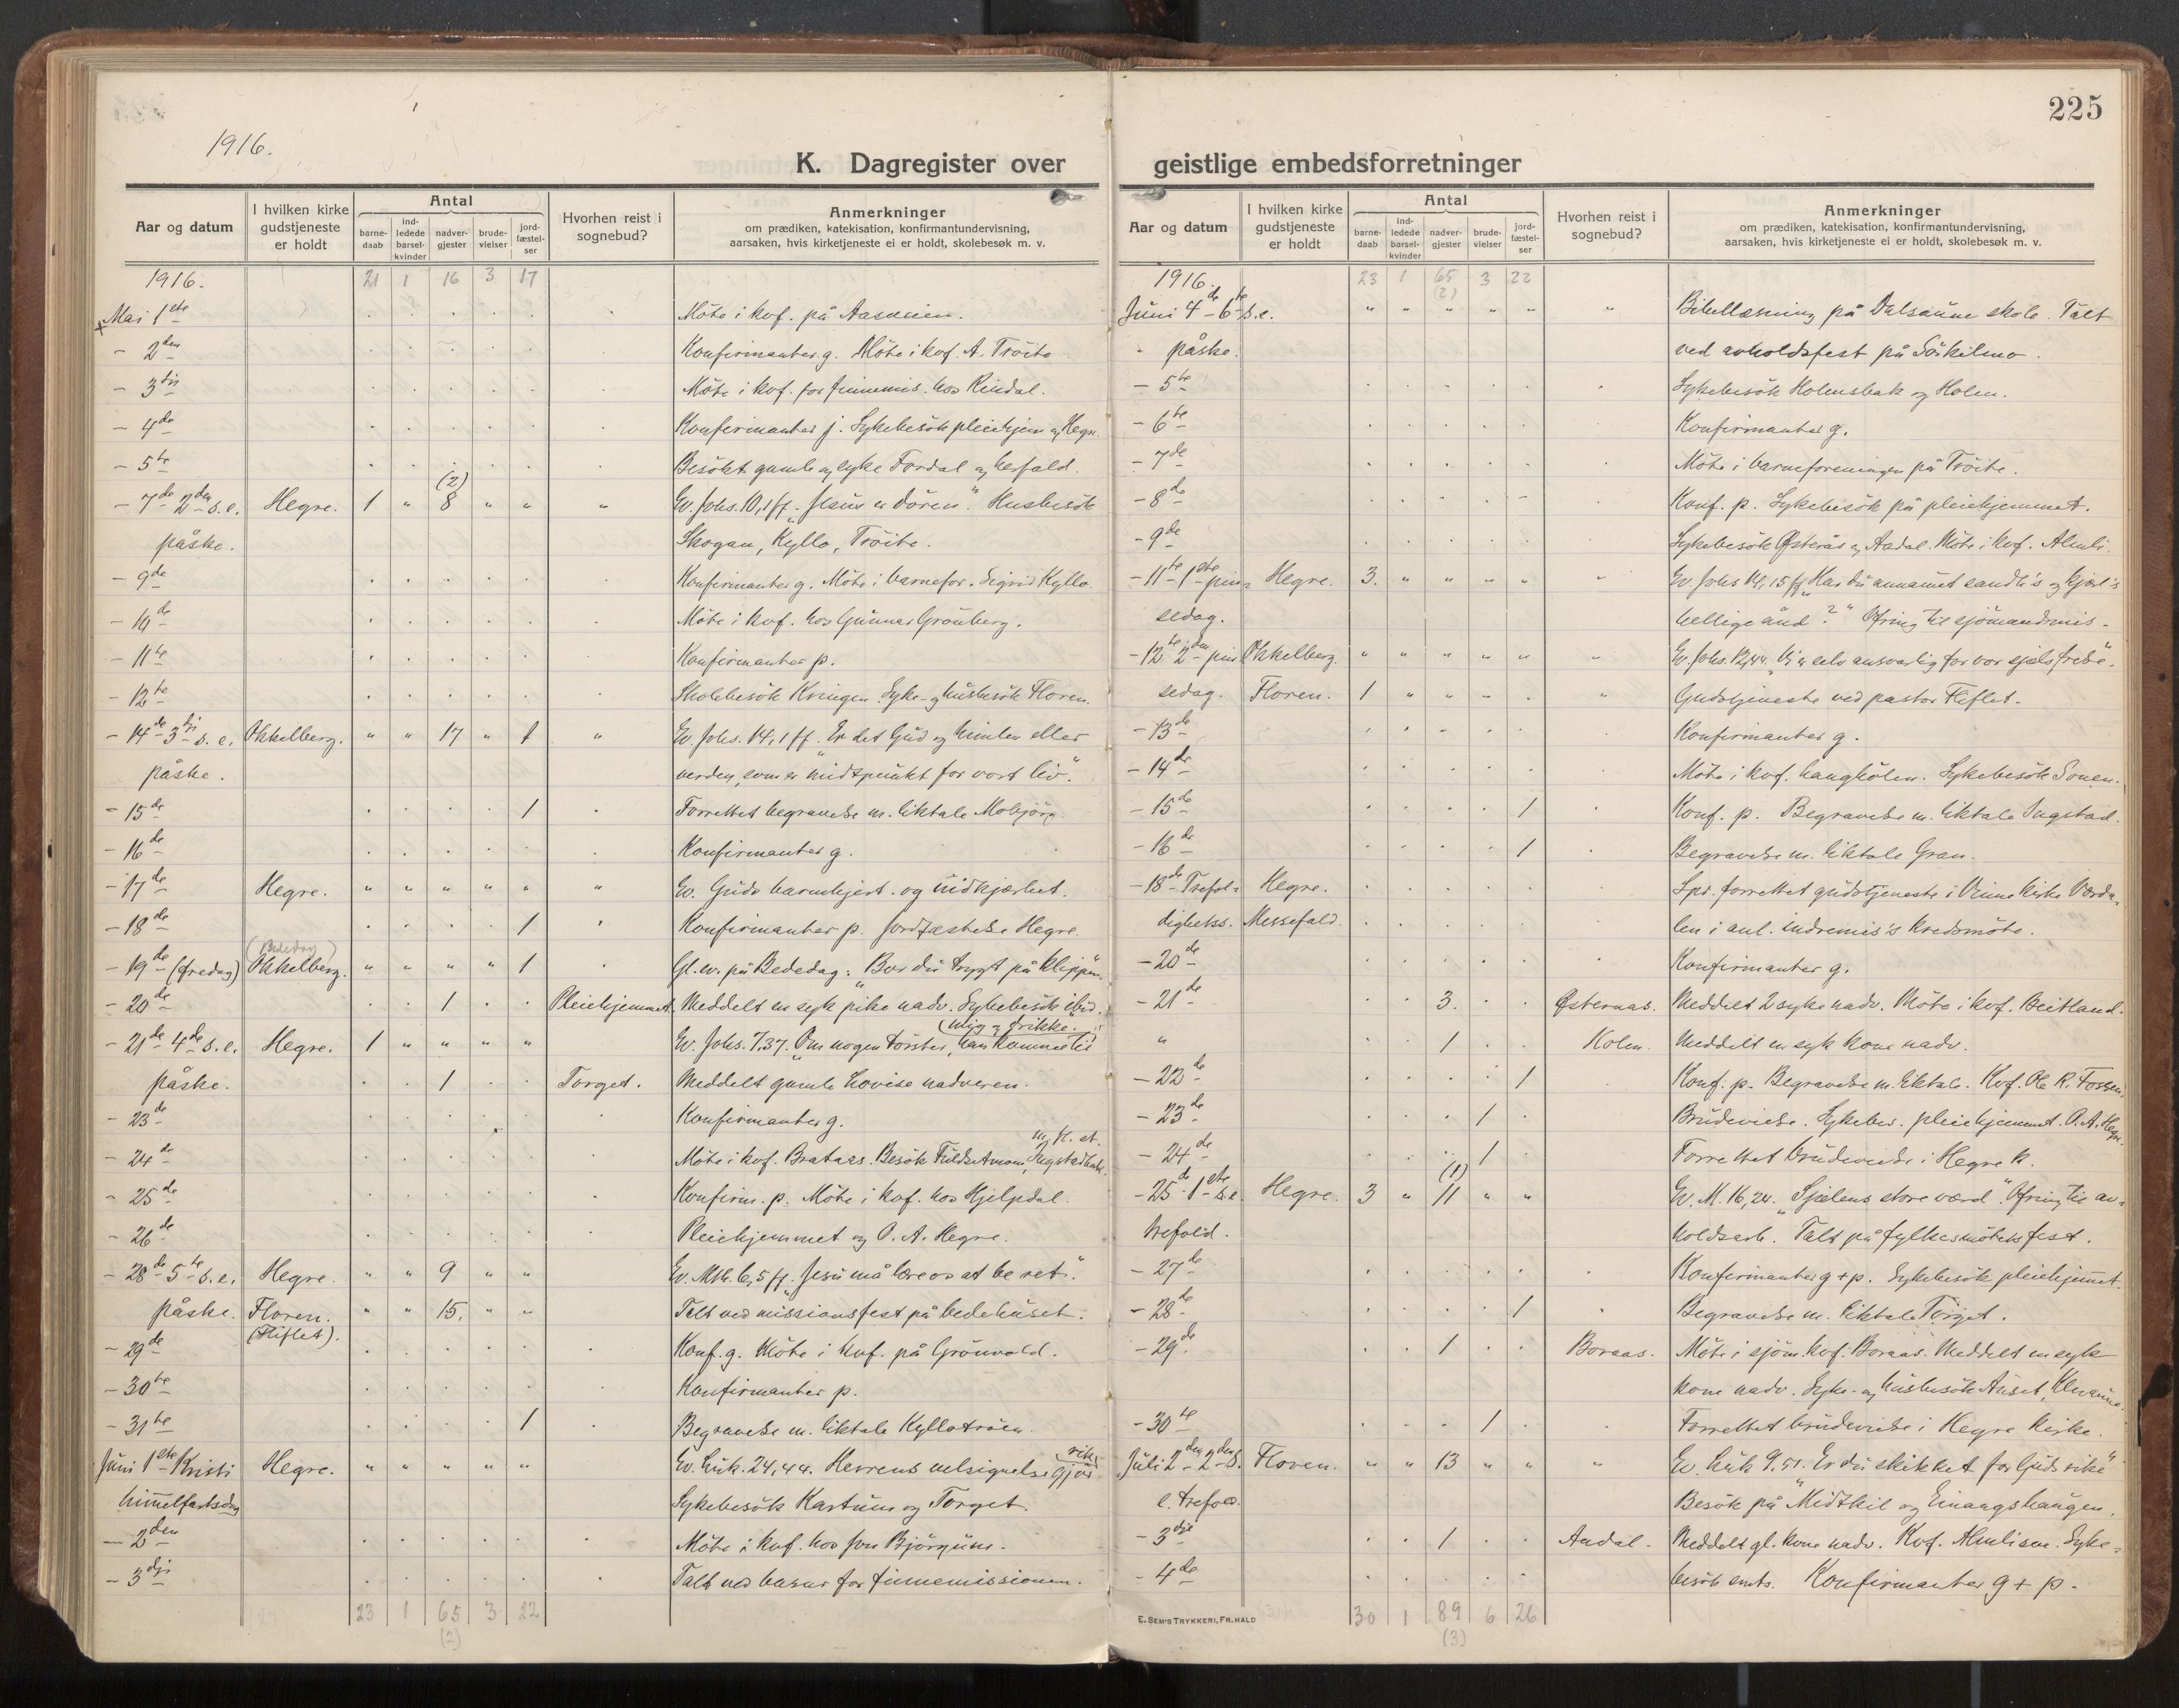 225
1916.
K. Dagregister over geistlige embedsforretninger
Aar og datum | I hvilken kirke gudstjeneste er holdt | Antal: barne-daab | ind-ledede barsel-kvinder | nadver-gjester | brude-vielser | jord-fæstel-ser | Hvorhen reist i sognebud? | Anmerkninger om prædiken, katekisation, konfirmantundervisning, aarsaken, hvis kirketjeneste ei er holdt, skolebesøk m. v.
1916. 21 1 16 3 17
Mai 1ste Möte i kvf. på Aasmoen.
- 2den Konfirmanter g. Möte i kvf. A. Tröite
- 3dje Möte i kvf. for finnemis. hos Rindal.
- 4de Konfirmanter j. Sykebesök pleiehjem og Hegre
- 5te Besökt gamle og syke Fordal og
(2)
- 7de 2den s.e. Hegre. 1 " 8 " " " Ev. Johs. 10,1 ff. "Jesus er dören". Husbesök
påske. Skogan, Kyllo, Tröite.
- 9de Konfirmanter g. Möte i barnefor. Sigrid Kyllo
- 10de Möte i kvf. hos Gunnar Grönberg.
- 11te Konfirmanter p.
- 12te Skolebesök Kringen. Syke- og husbesök Floren.
- 14de 3dje s.e. Okkelberg. " " 17 " 1 " Ev. Johs. 14,1 ff. "Er det Gud og himlen eller
påske. verden, som er midtpunkt for vort liv".
- 15de 1 Forrettet begravelse m. liktale Mobjörg
- 16de Konfirmanter g.
- 17de Hegre. " " " " " " Ev. Guds barmhjert. og nidkjærhet.
- 18de 1 Konfirmanter p. Jordfæstelse Hegre.
(Bededag)
- 19de (fredag) Okkelberg. " " " " 1 Gl. ev. på Bededag: "Bor du trygt på klippen".
- 20de 1 Pleiehjemmet. Meddelt en syk pike nadv. Sykebesök ibid.
(mig og drikke.
- 21de 4de s.e. Hegre. 1 " " " " Ev. Johs. 7,37. "Om nogen törster, han komme til
påske. 1 Torget. Meddelt gamle Lovise nadveren.
- 23de Konfirmanter g.
m. fl. st.
- 24de Möte i kvf. Brataas. Besök Fuldsetmoen, Ingstadbak.
- 25de Konfirm. p. Möte i kvf. hos Hjelpdal.
- 26de Pleiehjemmet og O. A. Hegre.
- 28de 5te s.e. Hegre. " " 9 " " Ev. Mth. 6,5 ff. "Jesu må lære os at be ret".
påske. Floren. " " 15. " " Talt ved missionsfest på bedehuset.
(Fliflet).
- 29de Konf. g. Möte i kvf. på Grönvold.
- 30te Konfirmanter p.
- 31te 1 Begravelse m. liktale Kyllotröen.
rik
Juni 1ste Kristi Hegre. " " " " " Ev. Luk. 24,44. Herrens velsignelse gjör
himmelfartsdag Sykebesök Kartum og Torget.
- 2den Möte i kvf. hos Jon Björgum.
- 3dje Talt ved basar for finnemissionen.
23 1 65 3 22
(2)
Aar og datum | I hvilken kirke gudstjeneste er holdt | Antal: barne-daab | ind-ledede barsel-kvinder | nadver-gjester | brude-vielser | jord-fæstel-ser | Hvorhen reist i sognebud? | Anmerkninger om prædiken, katekisation, konfirmantundervisning, aarsaken, hvis kirketjeneste ei er holdt, skolebesøk m. v.
1916. 23 1 65 3 22
(2)
Juni 4de 6te s.e. " " " " " " Bibellæsning på Dalsaune skole. Talt
påske. ved avholdsfest på
- 5te Sykebesök Holensbak og Holen.
- 6te Konfirmanter g.
- 7de Möte i barneforeningen på Tröite.
- 8de Konf. p. Sykebesök på pleiehjemmet.
- 9de Sykebesök Østerås og Aadal. Möte i kvf. Almli.
- 11te 1ste pin- Hegre. 3. " " " " " Ev. Johs 14,15 ff. "Har du annammet sandh's og kjærl's
sedag. hellige ånd?" Ofring til sjömandsmis.
- 12te 2den pin Okkelberg. " " " " " " Ev. Johs. 12,44. "Vi er selv ansvarlig for vor sjæls frelse".
sedag. Floren. 1 " " " " Gudstjeneste ved pastor Fliflet.
- 13de Konfirmanter g.
- 14de Möte i kvf. Sykebesök Sonen.
- 15de 1 Konf. p. Begravelse m. liktale Ingstad.
- 16de 1 Begravelse m. liktale Gran.
- 18de Trefol- Hegre. Spr. forrettet gudstjeneste i Vinne kirke Værda-
dighetss. Messefald. len i anl. indremis's kredsmöte.
- 20de Konfirmanter g.
- 21de 3. Østeraas. Meddelt 2 syke nadv. Möte i kvf. Beitland.
" 1 Holen. Meddelt en syk kone nadv.
- 22de 1 Konf. p. Begravelse m. liktale. Kvf. Ole R. Fossen.
- 23de 1 Brudevielse. Sykebes. pleiehjemmet. O. A. Hegre.
- 24de 1 Forrettet brudevielse i Hegre k.
(1)
- 25de 1ste s.e. Hegre. 3 " 11 " " Ev. M. 16,24. "Sjælens store værd". Ofring til av-
trefold. holdsarb. Talt på fylkesmötets fest.
- 27de Konfirmanter g + p. Sykebesök pleiehjemmet.
- 28de 1 Begravelse m. liktale Törget.
- 29de 1 Boraas. Möte i sjöm.kvf. Boraas. Meddelt en syk
kone nadv. Syke- og husbesök Auset,
- 30te 1 Forrettet brudevielse i Hegre kirke.
Juli 2den 2den s. Floren. " " 13 " " " Ev. Luk 9,51. "Er du skikket for Guds rike"
e. trefold. Besök på Midtkil og Einangshaugen.
- 3dje 1 Aadal. Meddelt gl. kone nadv. Kvf. Almlien. Syke-
- 4de besök smts. Konfirmanter g + p.
30 1 89 6 26
(3)
E. SEM'S TRYKKERI, FR.HALD